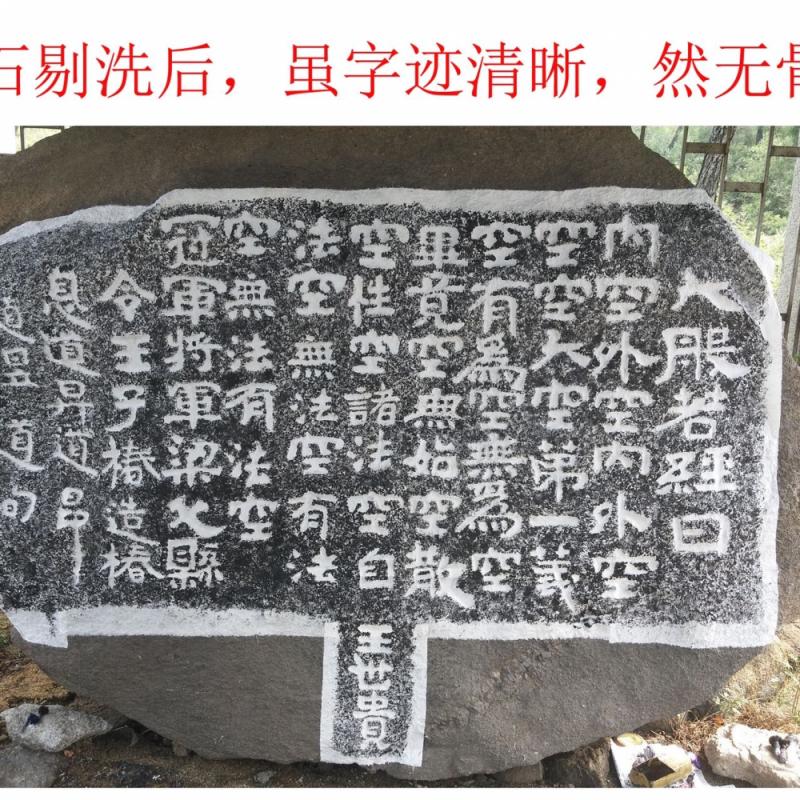 石剔洗后，虽字迹清晰，然无骨
大般若經曰
內空外空內外空
空空大空第一義
空有為空無為空
畢竟空無始空散
空性空諸法空自
法空無法空有法
空無法有法空
冠軍將軍梁父縣
令王子椿造椿
息道昇道昂
道昱道恂
王世貴